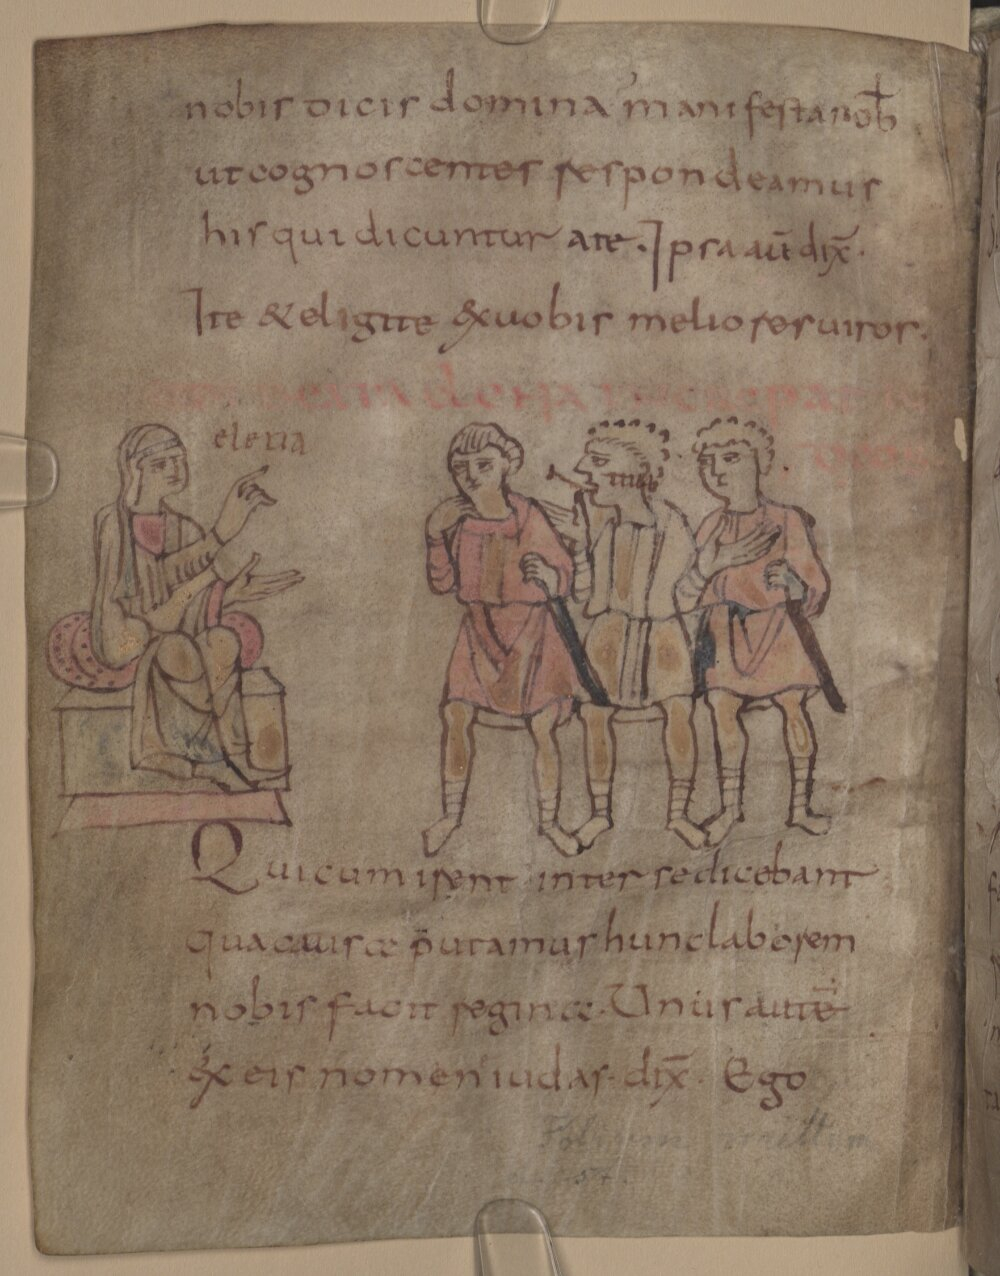 nobis dicis domina manifesta nob̄
ut cognoscentes respondeamus
his qui dicuntur a te. Ipsa aū dix̄.
Ite & eligite exuobis meliores uiros.
elena
Qui cum irent inter se dicebant
qua causa putamus hunc laborem
nobis facit regina. Unus autē
ex eis nomen iudas. dix̄. Ego